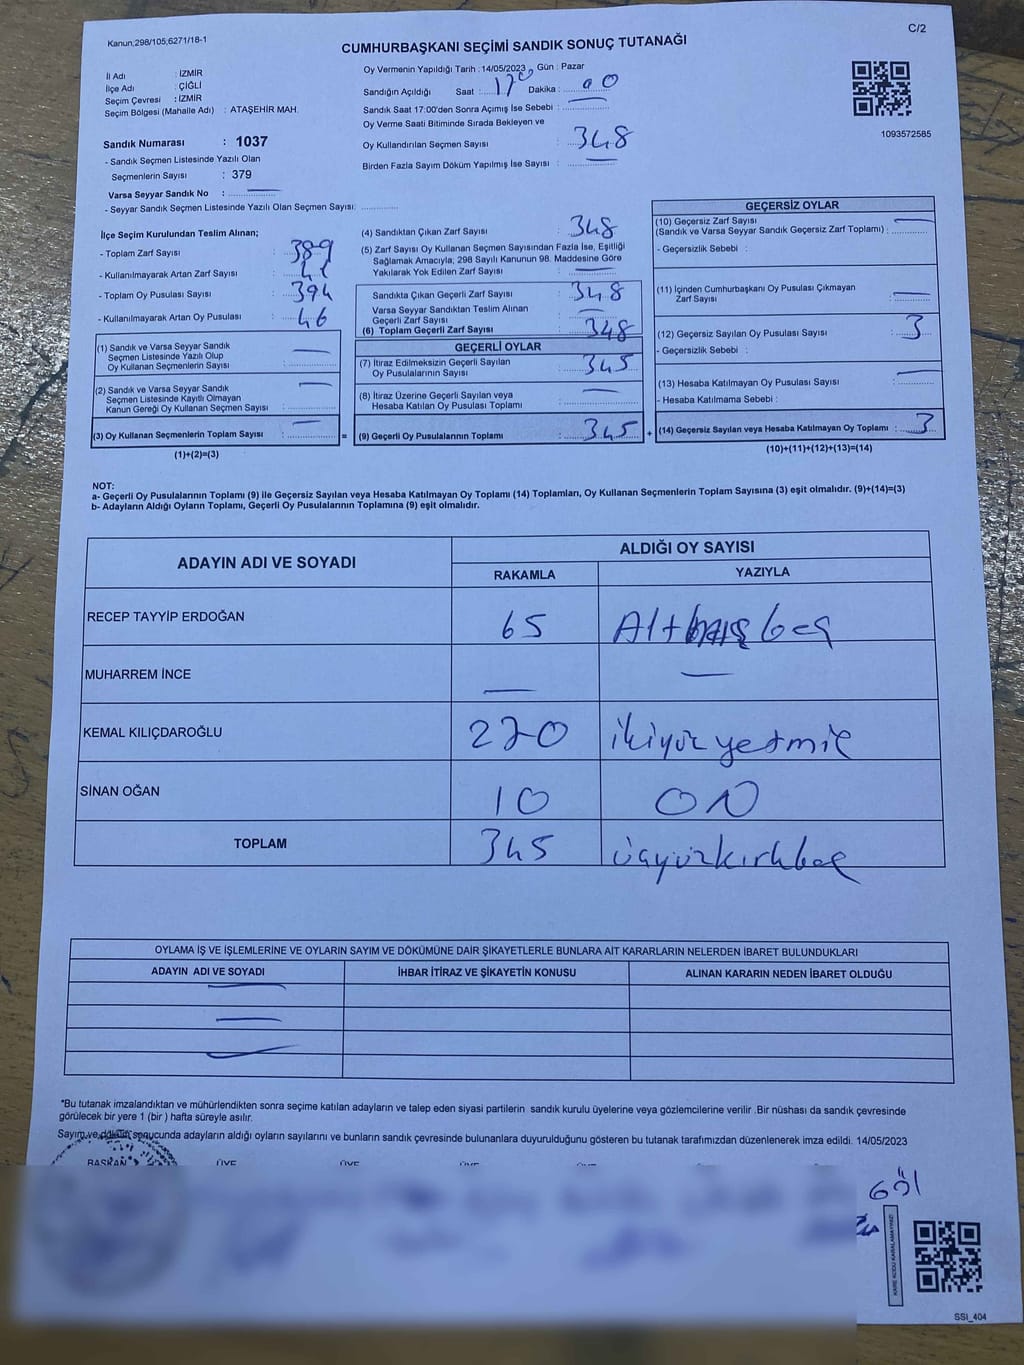 Kanun;298/105;6271/18-1
C/2
CUMHURBAŞKANI SEÇİMİ SANDIK SONUÇ TUTANAĞI
İl Adı : İZMİR
İlçe Adı : ÇİĞLİ
Seçim Çevresi : İZMİR
Seçim Bölgesi (Mahalle Adı) : ATAŞEHİR MAH.
Oy Vermenin Yapıldığı Tarih : 14/05/2023 Gün : Pazar
Sandığın Açıldığı Saat : 17 Dakika : 00
Sandık Saat 17:00'den Sonra Açımış İse Sebebi :
Oy Verme Saati Bitiminde Sırada Bekleyen ve
Oy Kullandırılan Seçmen Sayısı : 348
Birden Fazla Sayım Döküm Yapılmış İse Sayısı : —
1093572585
Sandık Numarası : 1037
- Sandık Seçmen Listesinde Yazılı Olan
Seçmenlerin Sayısı : 379
Varsa Seyyar Sandık No : —
- Seyyar Sandık Seçmen Listesinde Yazılı Olan Seçmen Sayısı:
İlçe Seçim Kurulundan Teslim Alınan;
- Toplam Zarf Sayısı : 389
- Kullanılmayarak Artan Zarf Sayısı :
- Toplam Oy Pusulası Sayısı : 394
- Kullanılmayarak Artan Oy Pusulası : 46
(1) Sandık ve Varsa Seyyar Sandık
Seçmen Listesinde Yazılı Olup
Oy Kullanan Seçmenlerin Sayısı : —
(2) Sandık ve Varsa Seyyar Sandık
Seçmen Listesinde Kayıtlı Olmayan
Kanun Gereği Oy Kullanan Seçmen Sayısı : —
(3) Oy Kullanan Seçmenlerin Toplam Sayısı : —
(1)+(2)=(3)
(4) Sandıktan Çıkan Zarf Sayısı : 348
(5) Zarf Sayısı Oy Kullanan Seçmen Sayısından Fazla İse, Eşitliği
Sağlamak Amacıyla; 298 Sayılı Kanunun 98. Maddesine Göre
Yakılarak Yok Edilen Zarf Sayısı : —
Sandıkta Çıkan Geçerli Zarf Sayısı : 348
Varsa Seyyar Sandıktan Teslim Alınan
Geçerli Zarf Sayısı : —
(6) Toplam Geçerli Zarf Sayısı : 348
GEÇERLİ OYLAR
(7) İtiraz Edilmeksizin Geçerli Sayılan
Oy Pusulalarının Sayısı : 345
(8) İtiraz Üzerine Geçerli Sayılan veya
Hesaba Katılan Oy Pusulası Toplamı : —
= (9) Geçerli Oy Pusulalarının Toplamı : 345
GEÇERSİZ OYLAR
(10) Geçersiz Zarf Sayısı
(Sandık ve Varsa Seyyar Sandık Geçersiz Zarf Toplamı) : —
- Geçersizlik Sebebi :
(11) İçinden Cumhurbaşkanı Oy Pusulası Çıkmayan
Zarf Sayısı : —
(12) Geçersiz Sayılan Oy Pusulası Sayısı : 3
- Geçersizlik Sebebi :
(13) Hesaba Katılmayan Oy Pusulası Sayısı : —
- Hesaba Katılmama Sebebi :
+ (14) Geçersiz Sayılan veya Hesaba Katılmayan Oy Toplamı : 3
(10)+(11)+(12)+(13)=(14)
NOT:
a- Geçerli Oy Pusulalarının Toplamı (9) ile Geçersiz Sayılan veya Hesaba Katılmayan Oy Toplamı (14) Toplamları, Oy Kullanan Seçmenlerin Toplam Sayısına (3) eşit olmalıdır. (9)+(14)=(3)
b- Adayların Aldığı Oyların Toplamı, Geçerli Oy Pusulalarının Toplamına (9) eşit olmalıdır.
ADAYIN ADI VE SOYADI ALDIĞI OY SAYISI
RAKAMLA YAZIYLA
RECEP TAYYİP ERDOĞAN 65 Altmış beş
MUHARREM İNCE — —
KEMAL KILIÇDAROĞLU 270 ikiyüz yetmiş
SİNAN OĞAN 10 ON
TOPLAM 345 üçyüzkırkbeş
OYLAMA İŞ VE İŞLEMLERİNE VE OYLARIN SAYIM VE DÖKÜMÜNE DAİR ŞİKAYETLERLE BUNLARA AİT KARARLARIN NELERDEN İBARET BULUNDUKLARI
ADAYIN ADI VE SOYADI İHBAR İTİRAZ VE ŞİKAYETİN KONUSU ALINAN KARARIN NEDEN İBARET OLDUĞU
*Bu tutanak imzalandıktan ve mühürlendikten sonra seçime katılan adayların ve talep eden siyasi partilerin sandık kurulu üyelerine veya gözlemcilerine verilir .Bir nüshası da sandık çevresinde
görülecek bir yere 1 (bir ) hafta süreyle asılır.
Sayım ve döküm sonucunda adayların aldığı oyların sayılarını ve bunların sandık çevresinde bulunanlara duyurulduğunu gösteren bu tutanak tarafımızdan düzenlenerek imza edildi. 14/05/2023
BAŞKAN ÜYE ÜYE ÜYE ÜYE
KARE KODU KARALAMAYINIZ!
SSI_404